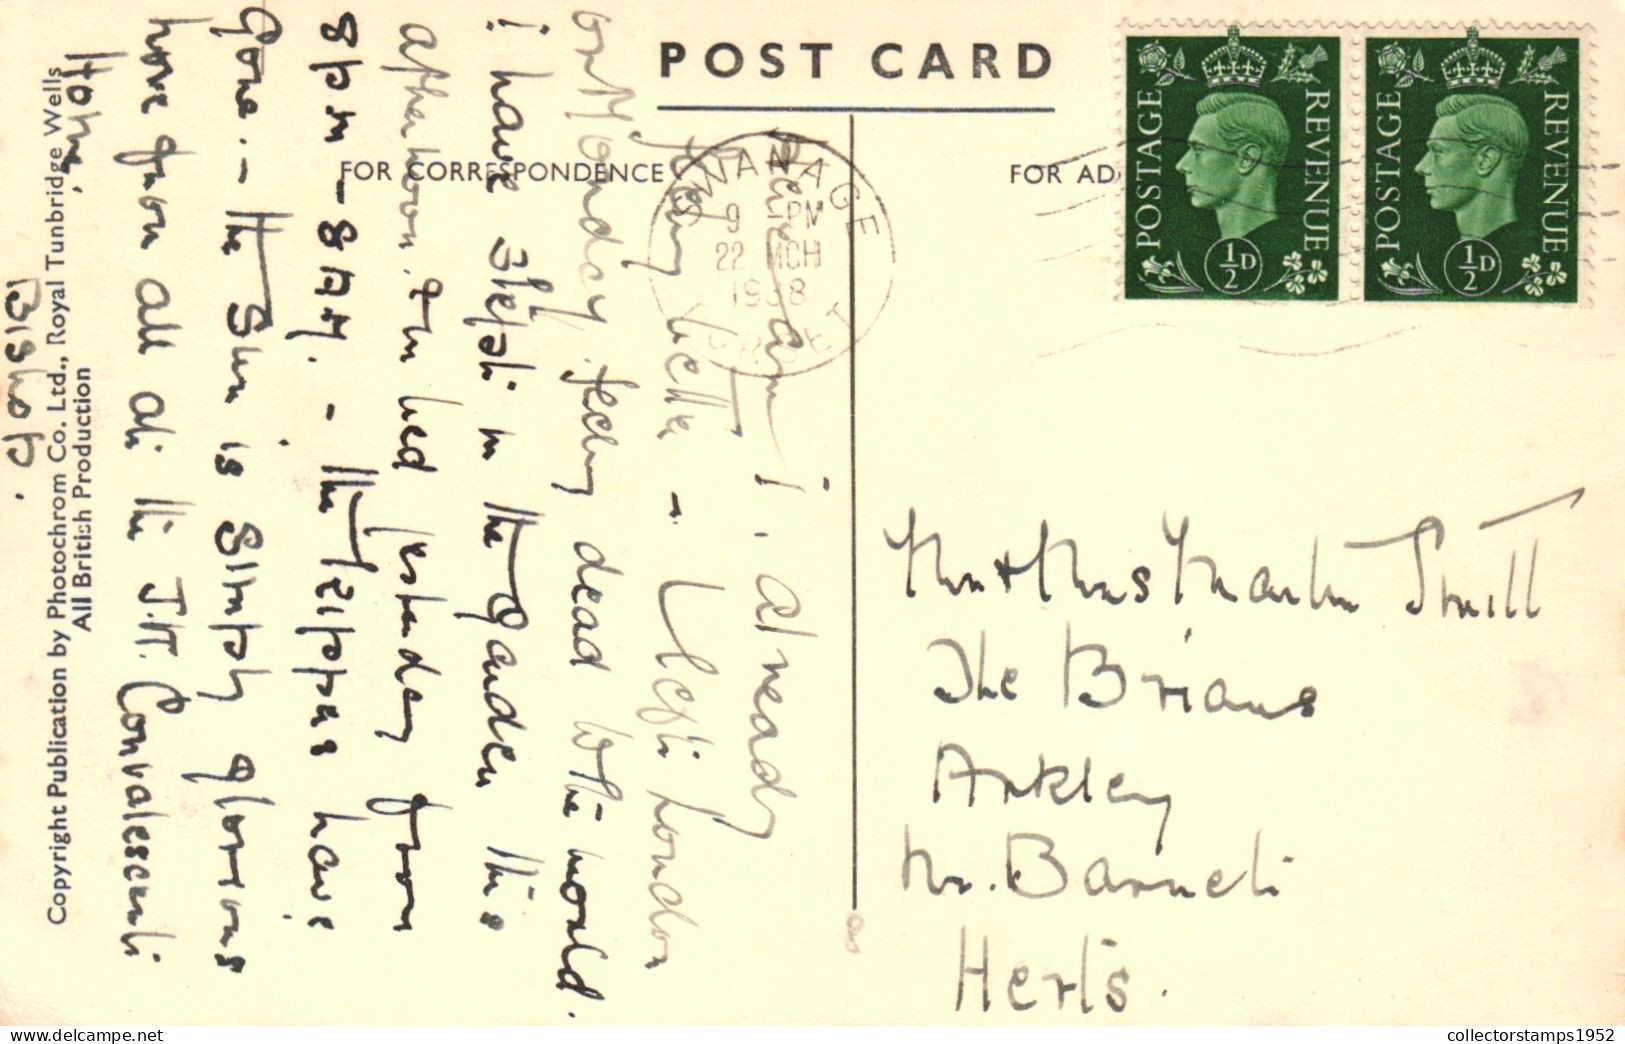 POST CARD
FOR CORRESPONDENCE
FOR AD
SWANAGE
9 - PM
22 MCH
1938
DORSET
POSTAGE REVENUE
½D
POSTAGE REVENUE
½D
Here I am - I. already
feeling better - Left London
on Monday feeling dead to the world.
I have slept in the garden this
afternoon. & in bed yesterday from
8pm - 8AM. - the Trippers have
Gone. - the Sun is Simply glorious
have from all at the J.H. Convalescent
Home,
BISHOP.
Copyright Publication by Photochrom Co. Ltd., Royal Tunbridge Wells
All British Production
Mr & Mrs Martin
The Brians
Arkley
Nr. Barnet
Herts.
collectorstamps1952